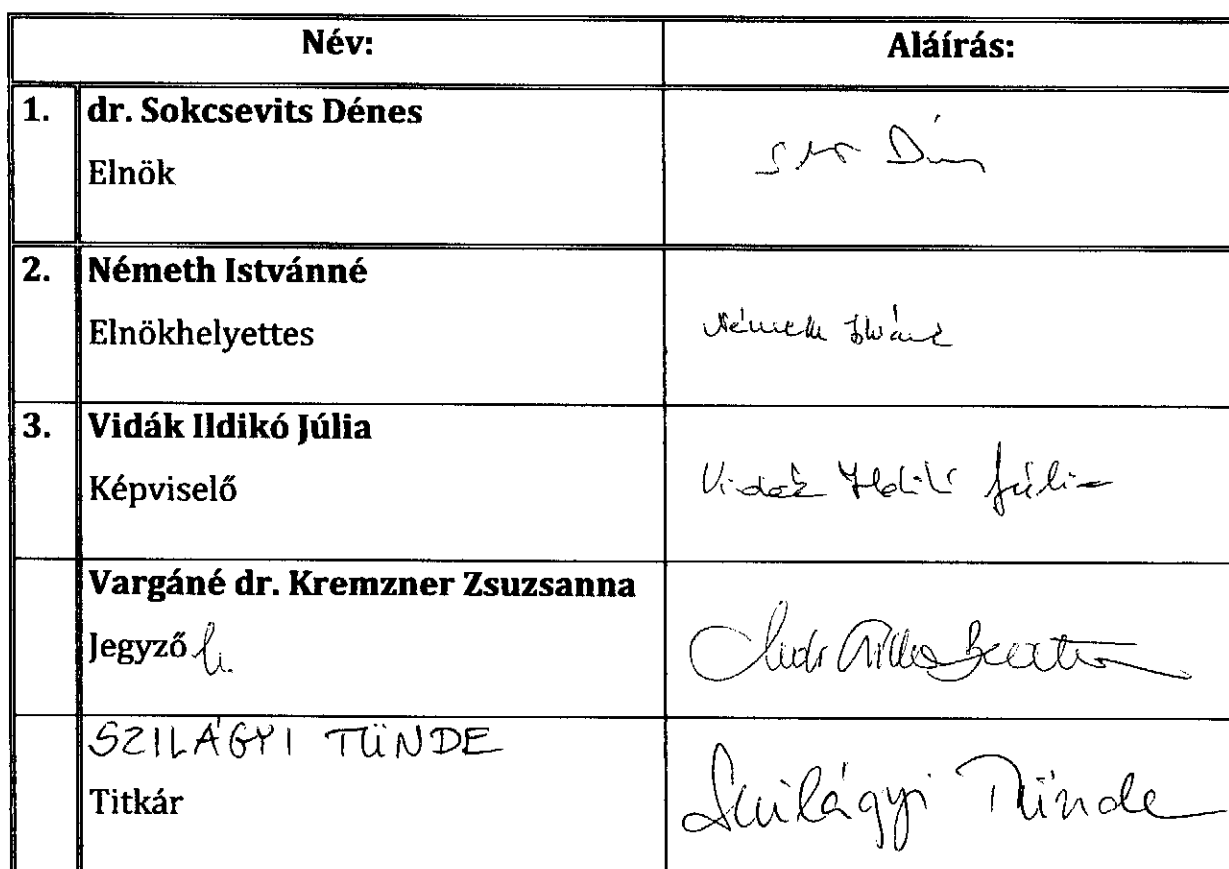 Név: Aláírás:
1. dr. Sokcsevits Dénes
Elnök
2. Németh Istvánné
Elnökhelyettes Németh Istváné
3. Vidák Ildikó Júlia
Képviselő Vidák Ildikó Júlia
Vargáné dr. Kremzner Zsuzsanna
Jegyző h.
SZILÁGYI TÜNDE
Titkár Szilágyi Tünde